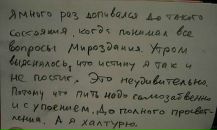 Я много раз допивался до такого
состояния, когда понимал все
вопросы Мироздания. Утром
выяснялось, что истину я так и
не постиг. Это неудивительно.
Потому что пить надо самозабвенно
и с упоением, до полного просвет-
ления. А я халтурю.